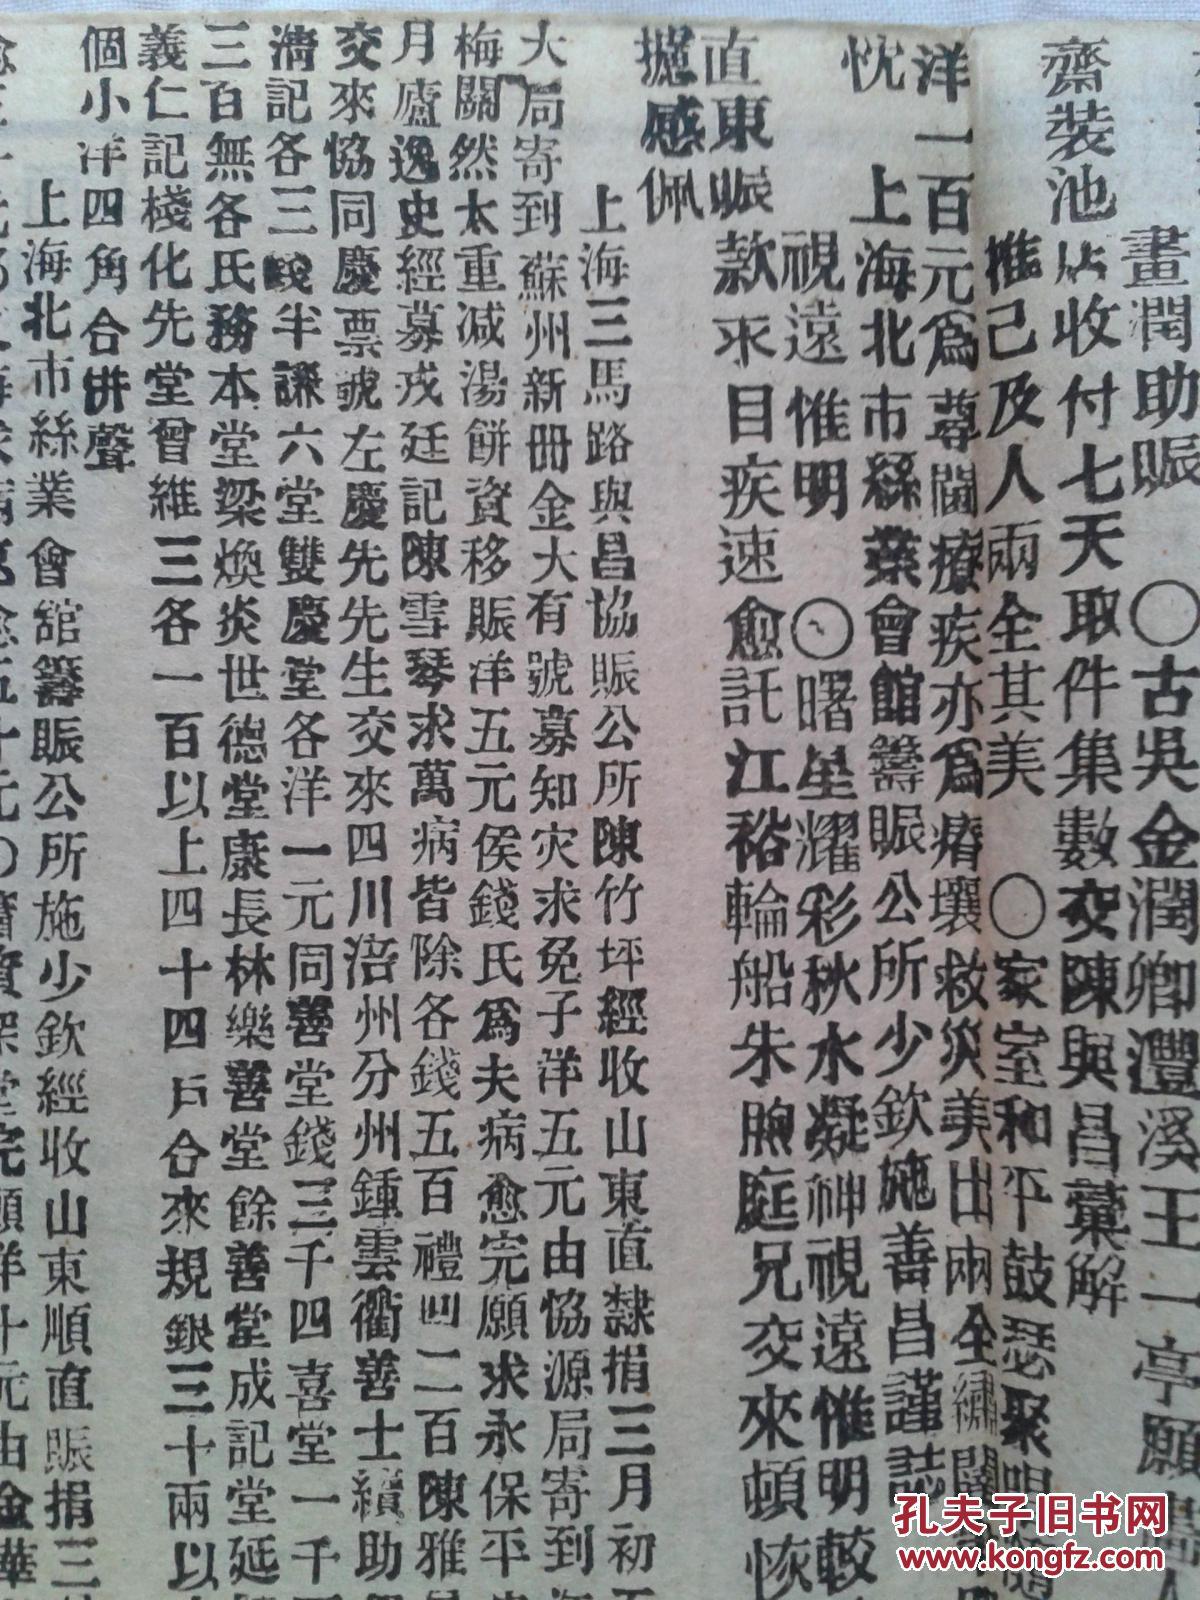 畫潤助賑　〇古吳金潤卿灃溪王一亭願
齋裝池　收付七天取件集數交陳與昌彙解
推己及人兩全其美　〇家室和平鼓瑟聚
洋一百元爲尊閫療疾亦爲瘠壤救災美出兩全繡閣
忱　上海北市絲業會館籌賑公所少欽施善昌謹誌
視遠惟明　〇曙星耀彩秋水凝神視遠惟明較
款求目疾速愈託江裕輪船朱煦庭兄交來頓恢
直東賑
攄感佩
上海三馬路與昌協賑公所陳竹坪經收山東直隸捐三月初
大局寄到蘇州新冊金大有號募知災求免子洋五元由協源局寄到
梅關然太重減湯餅資移賑洋五元侯錢氏爲夫病愈完願求永保平
月廬逸史經募戎廷記陳雪琴求萬病皆除各錢五百禮四二百陳雅
交來協同慶票號左慶先先生交來四川涪州分州鍾雲衢善士續助
淸記各三半謙六堂雙慶堂各洋一元同善堂錢三千四喜堂一千
三百無各氏務本堂梁煥炎世德堂康長林樂善堂餘善堂成記堂延
義仁記棧化先堂曾維三各一百以上四十四戶合來規銀三十兩以
個小洋四角合併聲
上海北市絲業會館籌賑公所施少欽經收山東順直賑捐三
孔夫子旧书网
www.kongfz.com